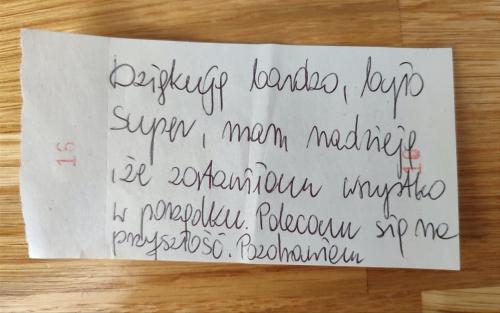 Dziękuję bardzo, było
super, mam nadzieję
, że zostawiłam wszystko
w porządku. Polecam się na
przyszłość. Pozdrawiam
16
16